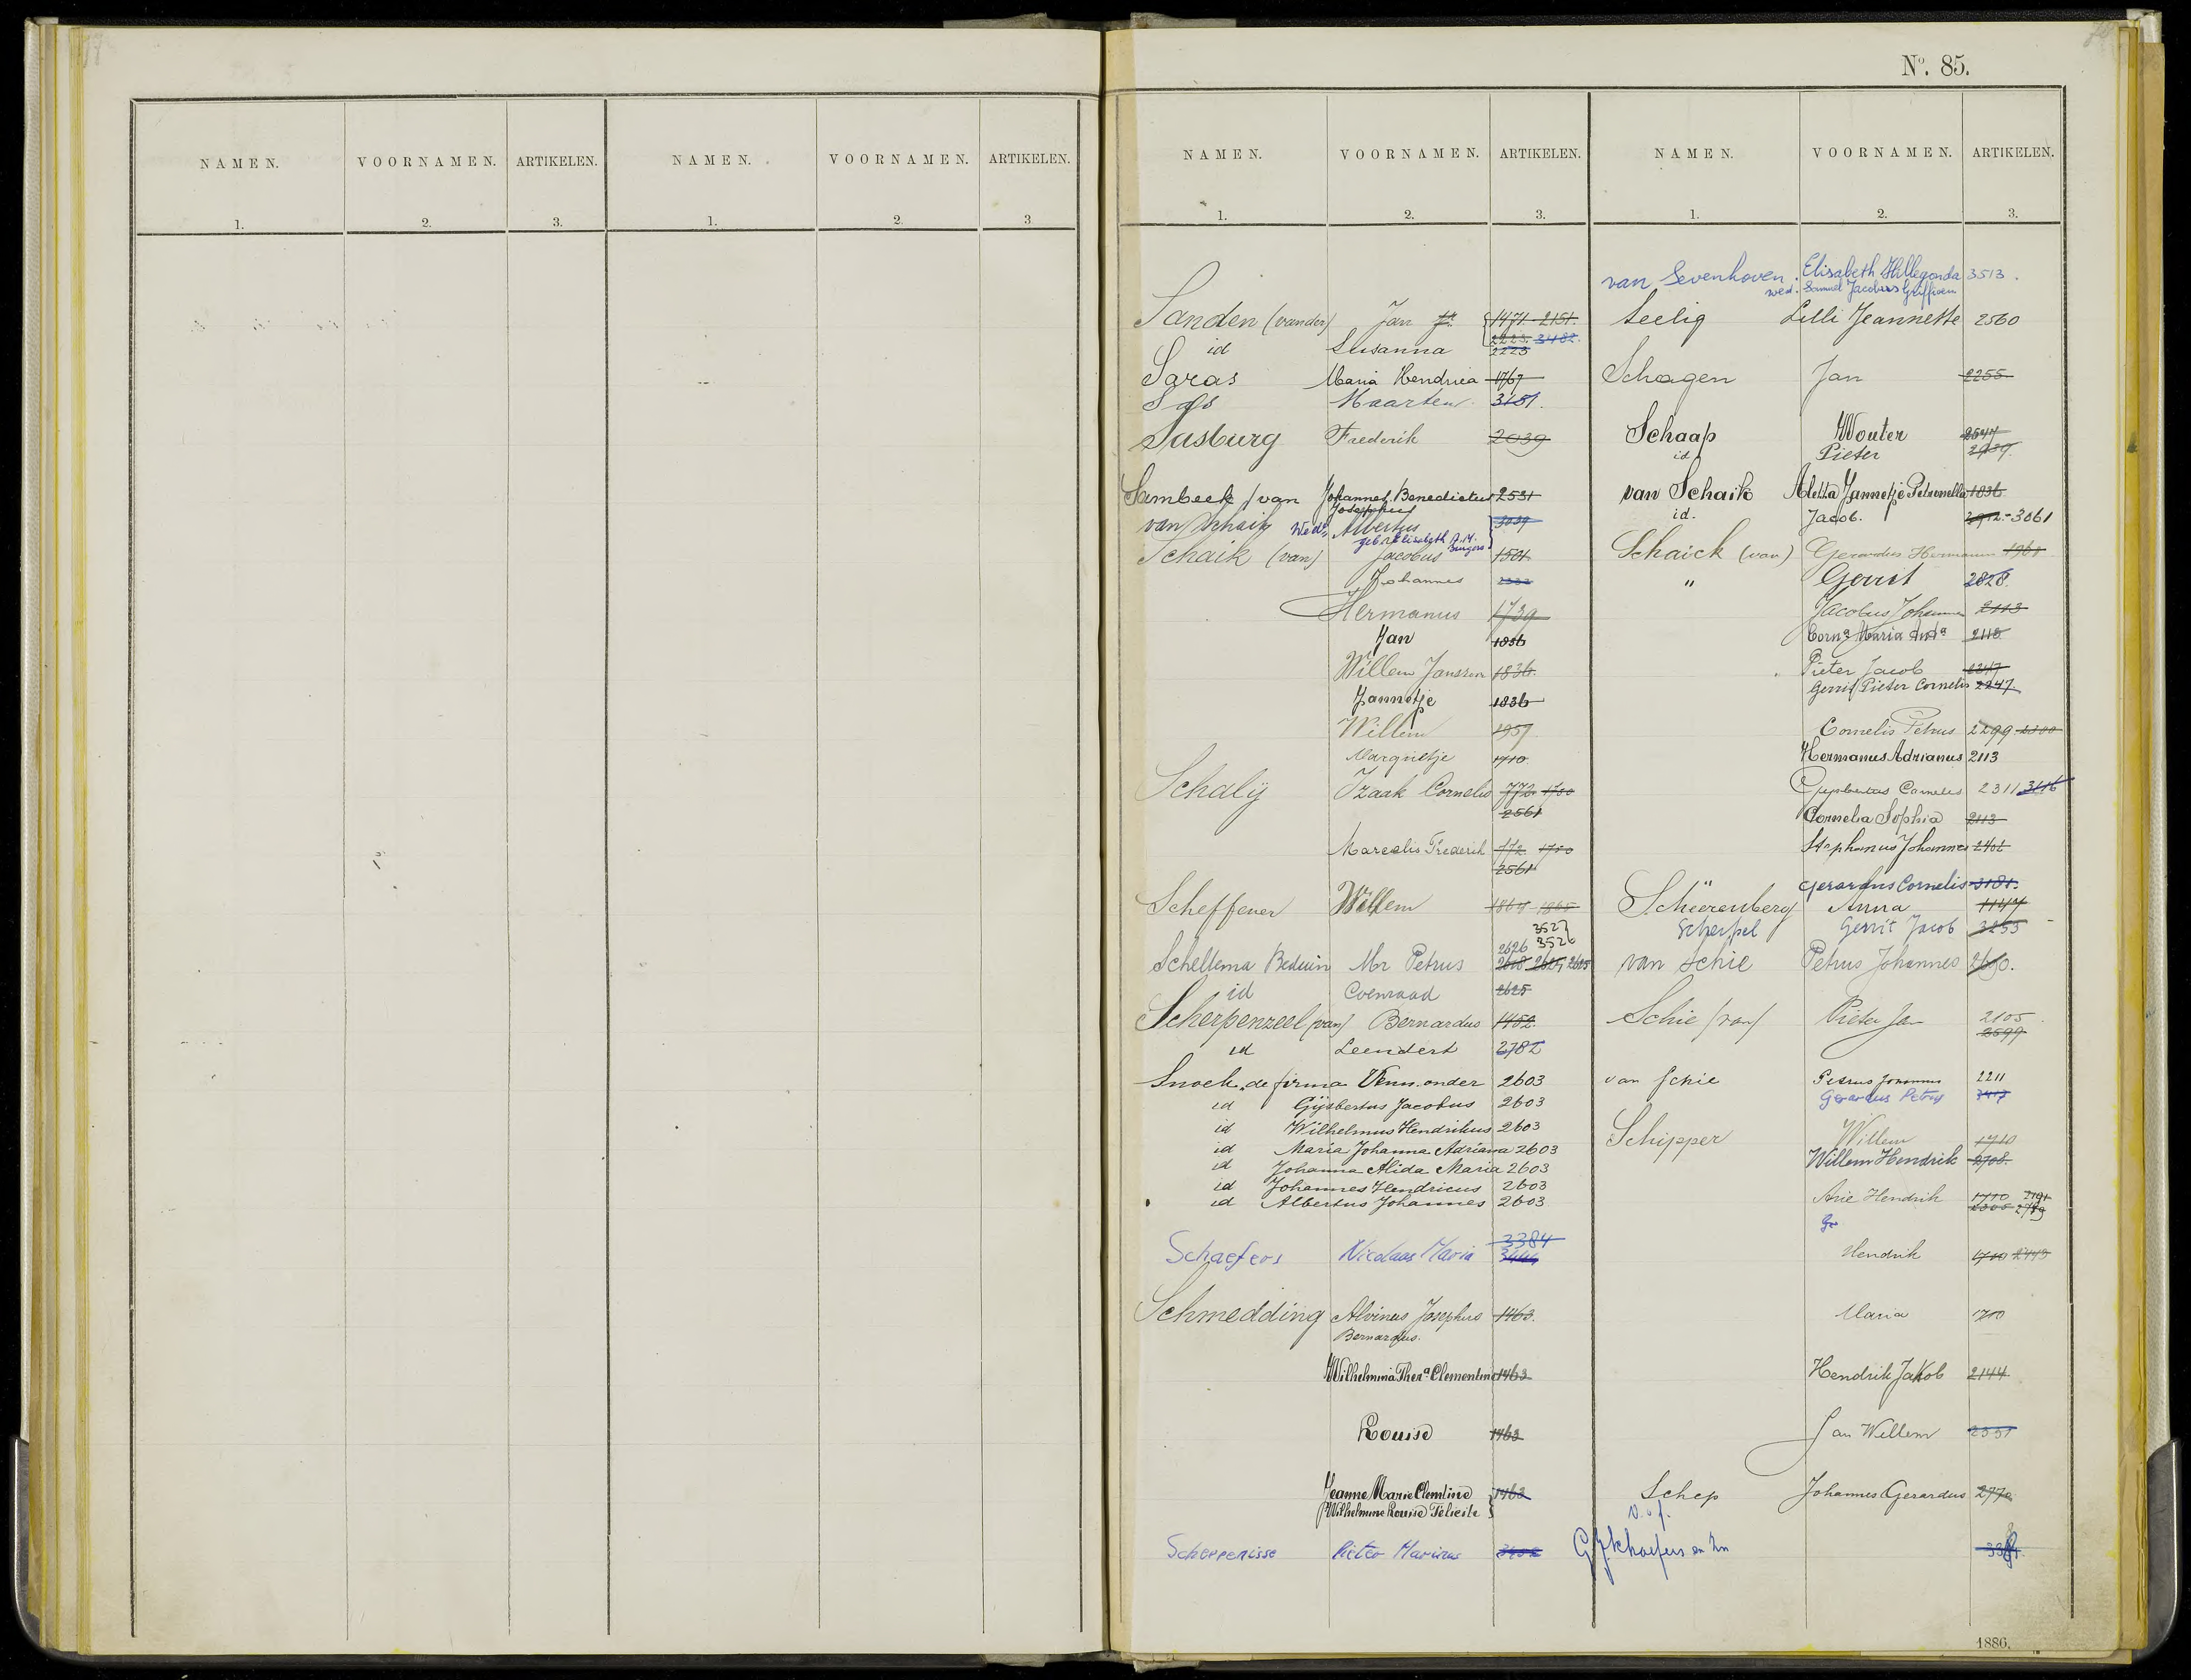 NAMEN. VOORNAMEN. ARTIKELEN. NAMEN. VOORNAMEN. ARTIKELEN.
1. 2. 3. 1. 2. 3
No. 85.
NAMEN. VOORNAMEN. ARTIKELEN. NAMEN. VOORNAMEN. ARTIKELEN.
1. 2. 3. 1. 2. 3.
Sanden (vander) Jan Jr. 1471. 2151.
2223. 3482.
id Susanna 2223
Saras Maria Hendrica 1767
Maarten 3151.
Susburg Frederik 2039
Sambeek /van Johannes Benedictus 2531
Josephus
van Schaik Wed. Albertus 3039
geb. Elisabeth A.M. Burgers
Schaik (van) Jacobus 1501.
Johannes
Hermanus 1739
Jan 1836
Willem Janszoon 1836.
Jannetje 1836
Willem 1957
Margrietje 1710.
Schalij Izaak Cornelis 772. 1780
2561
Marcelis Frederik 772. 1780
2561
Scheffener Willem 1865
3527
2626 3526
Scheltema Beduin Mr Petrus 2625
id Coenraad 2625
Scherpenzeel (van) Bernardus 1452.
id Leendert 2782
Snoek, de firma Venn. onder 2603
id Gijsbertus Jacobus 2603
id Wilhelmus Hendrikus 2603
id Maria Johanna Adriana 2603
id Johanna Alida Maria 2603
id Johannes Hendricus 2603
id Albertus Johannes 2603
3384
Schaefers Nicolaas Maria 3444
Schmedding Alvinus Josephus 1463.
Bernardus.
Wilhelmina Thera. Clementine 1463
Louise 1463
Jeanne Marie Clemtine 1463
Wilhelmine Louise Félicité
Scherpenisse Pieter Marinus
van Sevenhoven: Elisabeth Hillegonda 3513.
wed: Samuel Jacobus Griffioen
Seelig Lilli Jeannette 2560
Schagen Jan 2255
Schaap Wouter 2544
id Pieter 2939.
van Schaik Aletta Jannetje Petronella 1836
id. Jacob. 3061
Schaick (van) Gerardus Hermanus 1961
" Gerrit 2828.
Jacobus Johannes 2113
Corna. Maria 2118
Pieter Jacob 2247
Gerrit Pieter Cornelis 2247
Cornelis Petrus 2299 2300
Hermanus Adrianus 2113
Gijsbertus Cornelis 2311 3116
Cornelia Sophia 2113
Stephanus Johannes 2402
Gerardus Cornelis 3181.
Scheerenberg Anna 1147
Scherpel Gerrit Jacob 3255
van Schie Petrus Johannes 2650.
Schie /van/ Pieter Jan 2105
2599
van Schie Petrus Johannes 2211
Gerardus Petrus 3417
Schipper Willem 1710
Willem Hendrik 2708.
Arie Hendrik 1710 2191
2305 2789
Ge
Hendrik 1710 2443
Maria 1710
Hendrik Jakob 2144
Jan Willem 2351
Schep Johannes Gerardus 2770
V.o.f.
G.J. Schaefers en Zn
1886.